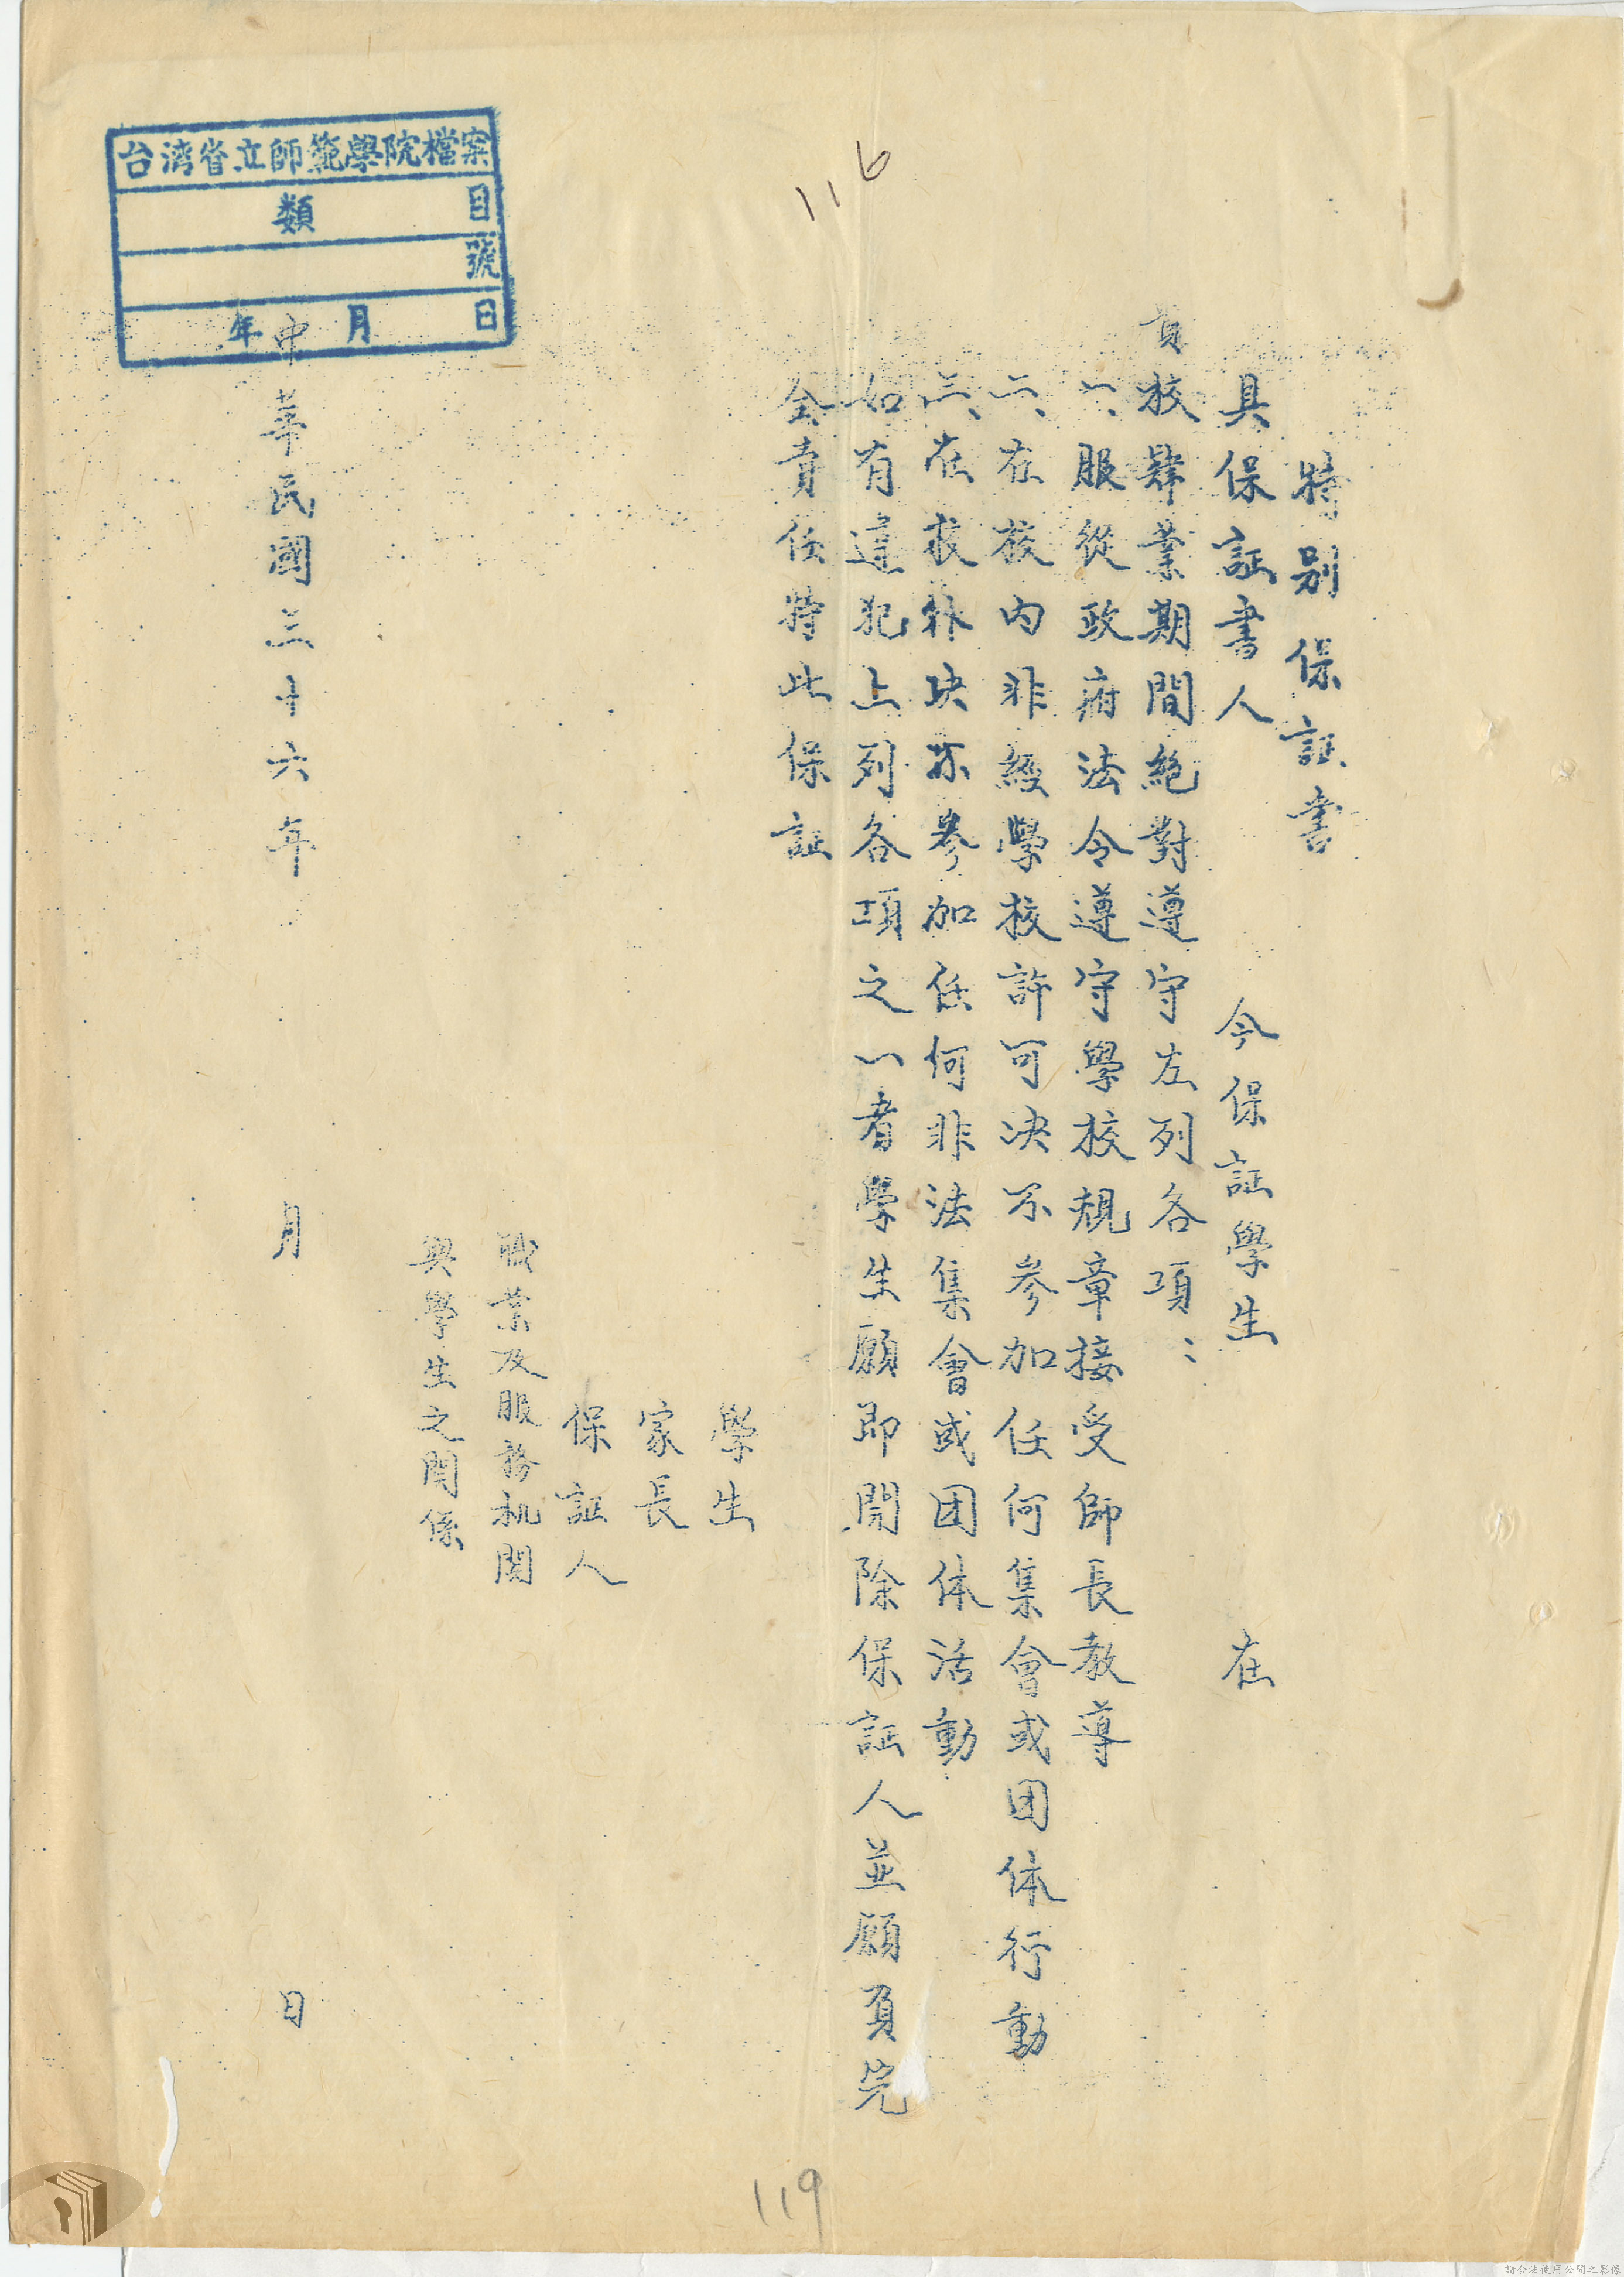 特別保証書
具保証書人 今保証學生 在
貴校肄業期間絶對遵守左列各項：
一、服從政府法令遵守學校規章接受師長教導
二、在校内非經學校許可决不參加任何集會或团体行動
三、在校外决不參加任何非法集會或团体活動
如有違犯上列各項之一者學生願即開除保証人並願負完
全責任特此保証
學生
家長
保証人
職業及服務机関
與學生之関係
中華民國三十六年 月 日
台湾省立師範學院檔案
類 目
號
年 月 日
116
119
請合法使用公開之影像